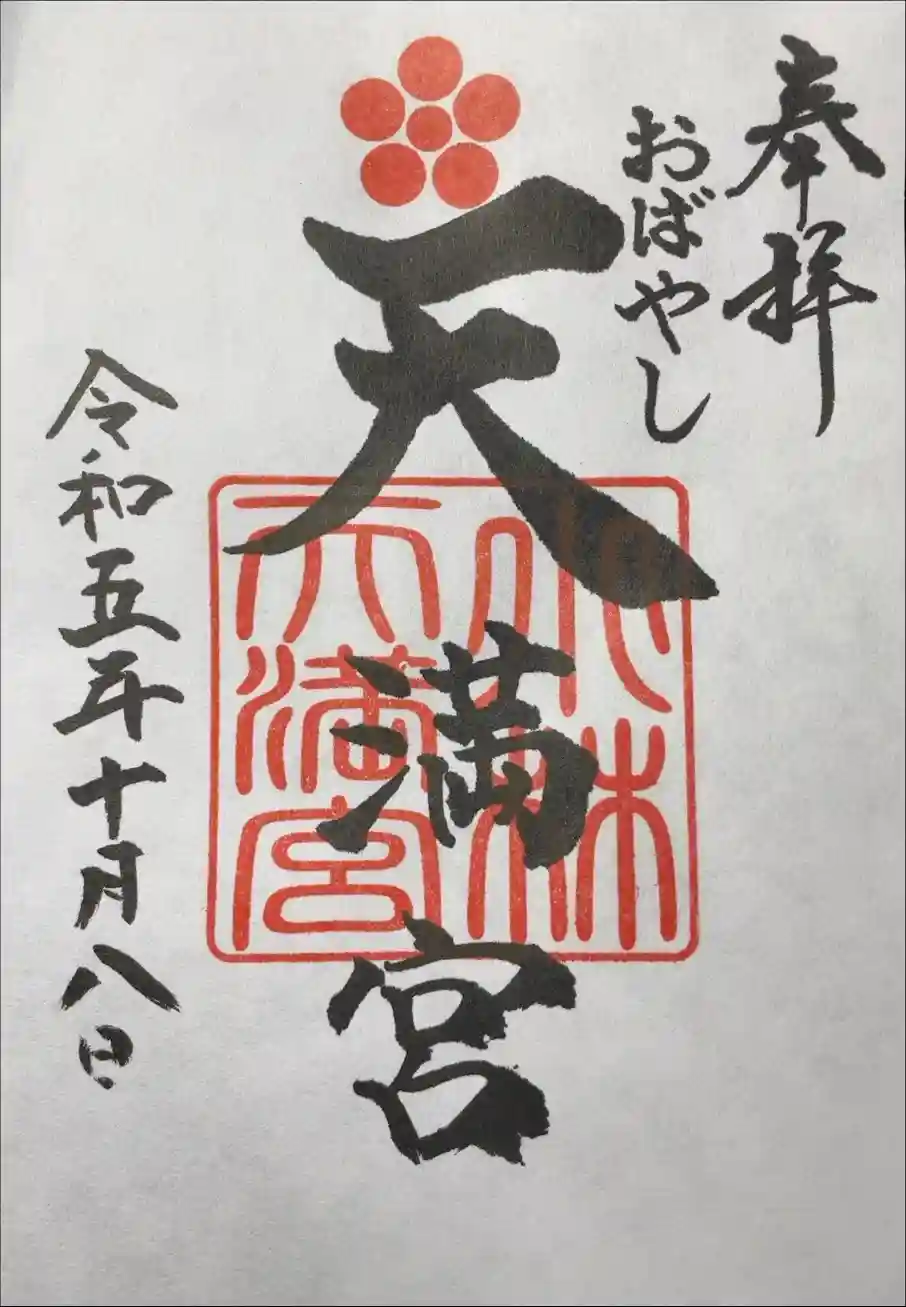 奉拝
おばやし
天満宮
小林
天満宮
令和五年十月八日